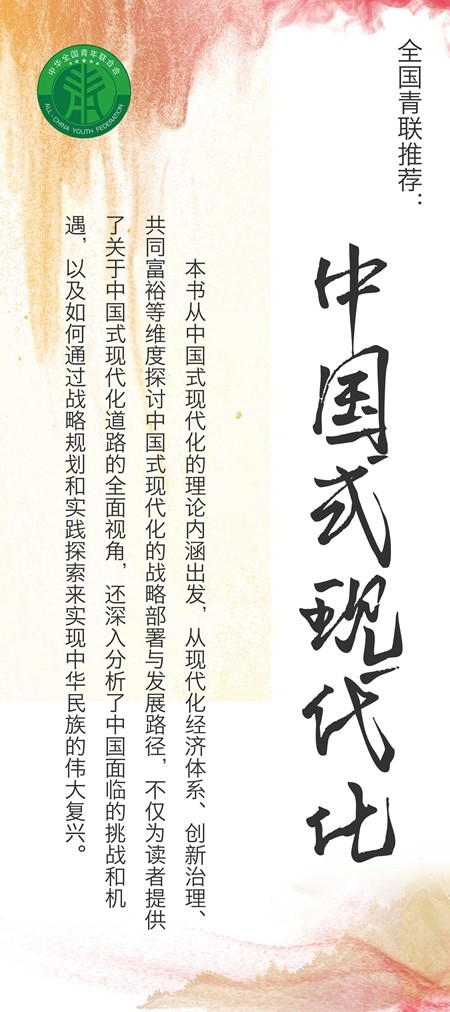 全国青联推荐：
中国式现代化
本书从中国式现代化的理论内涵出发，从现代化经济体系、创新治理、
共同富裕等维度探讨中国式现代化的战略部署与发展路径，不仅为读者提供
了关于中国式现代化道路的全面视角，还深入分析了中国面临的挑战和机
遇，以及如何通过战略规划和实践探索来实现中华民族的伟大复兴。
中华全国青年联合会
ALL-CHINA YOUTH FEDERATION